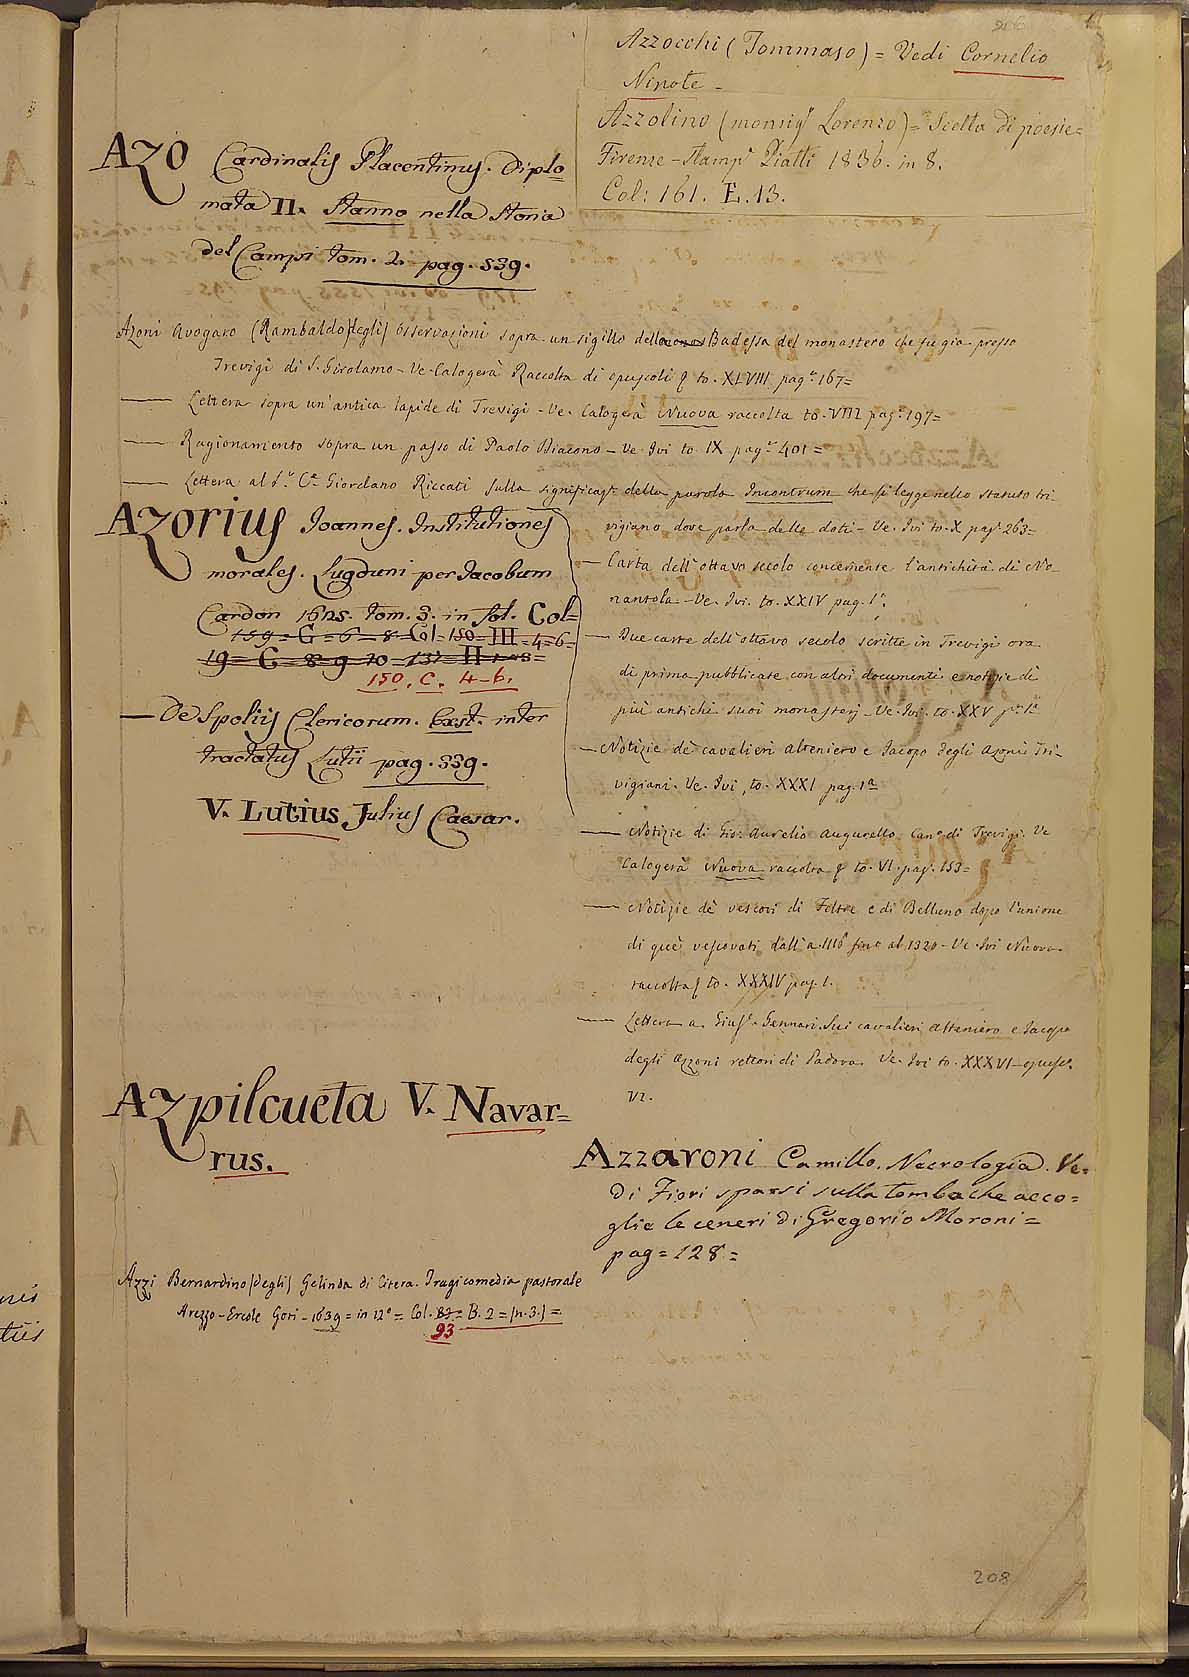 206
Azzocchi (Tommaso) = Vedi Cornelio
Nipote -
Azzolino (monsigr Lorenzo) = Scelta di poesie =
Firenze - Stampa Piatti 1836. in 8.
Col: 161. E. 13.
AZO Cardinalis Placentinus. Diplo
mata II. Stanno nella Storia
del Campi tom. 2. pag. 539.
Azoni Avogaro (Rambaldo degli) Osservazioni sopra un sigillo della Badessa del monastero che fu già presso
Trevigi di S. Girolamo - Ve. Calogerà Raccolta di opuscoli to. XLVIII pag. 167 =
Lettera sopra un' antica lapide di Trevigi - Ve. Calogerà Nuova raccolta to. VIII pag. 197 =
Ragionamento sopra un passo di Paolo Diacono - Ve. Ivi to. IX pag. 401 =
Lettera al S.r C.e Giordano Riccati sulla significaz.e della parola Incontrum che si legge nello statuto tri
vigiano dove parla delle doti - Ve. Ivi to. X pag. 263 =
AZORIUS Joannes. Institutiones
morales. Lugduni per Jacobum
Cardon 1625. tom. 3. in fol. Col =
159 = G = 6 = 8 G I = 150 = III = 4 = 6 =
19 = G = 8 = 9 10 = 137 = II
150. C. 4-6.
— De Spoliis Clericorum. Exst. inter
tractatus Lutii pag. 339.
V. Lutius Julius Caesar.
— Carta dell' ottavo secolo concernente l'antichità di No-
nantola - Ve. Ivi. to. XXIV pag. 1a.
— Due carte dell' ottavo secolo scritte in Trevigi ora
di prima pubblicate con altri documenti e notizie di
più antichi suoi monasterj - Ve. Ivi. to. XXV p. 1a
— Notizie de cavalieri Alteniero e Jacopo degli Azoni Tri-
vigiani. Ve. Ivi, to. XXXI pag. 1a
— Notizie di Gio: Aurelio Augurello Can.o di Trevigi. Ve
Calogerà Nuova raccolta to. VI. pag. 153 =
— Notizie de vescovi di Feltre e di Belluno dopo l'unione
di que' vescovati dall' a. 1116 fino al 1320 - Ve. Ivi Nuova
raccolta to. XXXIV pag. 1.
— Lettera a Gius.e Gennari sui cavalieri Alteniero e Jacopo
degli Azzoni rettori di Padova. Ve. Ivi to. XXXVI opusc.
VI.
AZpilcueta V. Navar=
rus.
Azzaroni Camillo. Necrologia. Ve=
di Fiori sparsi sulla tomba che acco=
glie le ceneri di Gregorio Moroni =
pag = 128 =
Azzi Bernardino (degli) Gelinda di Citera. Tragicomedia pastorale
Arezzo - Ercole Gori - 1639 = in 12° = Col. 87 = B. 2 = (n. 3.) =
93
208